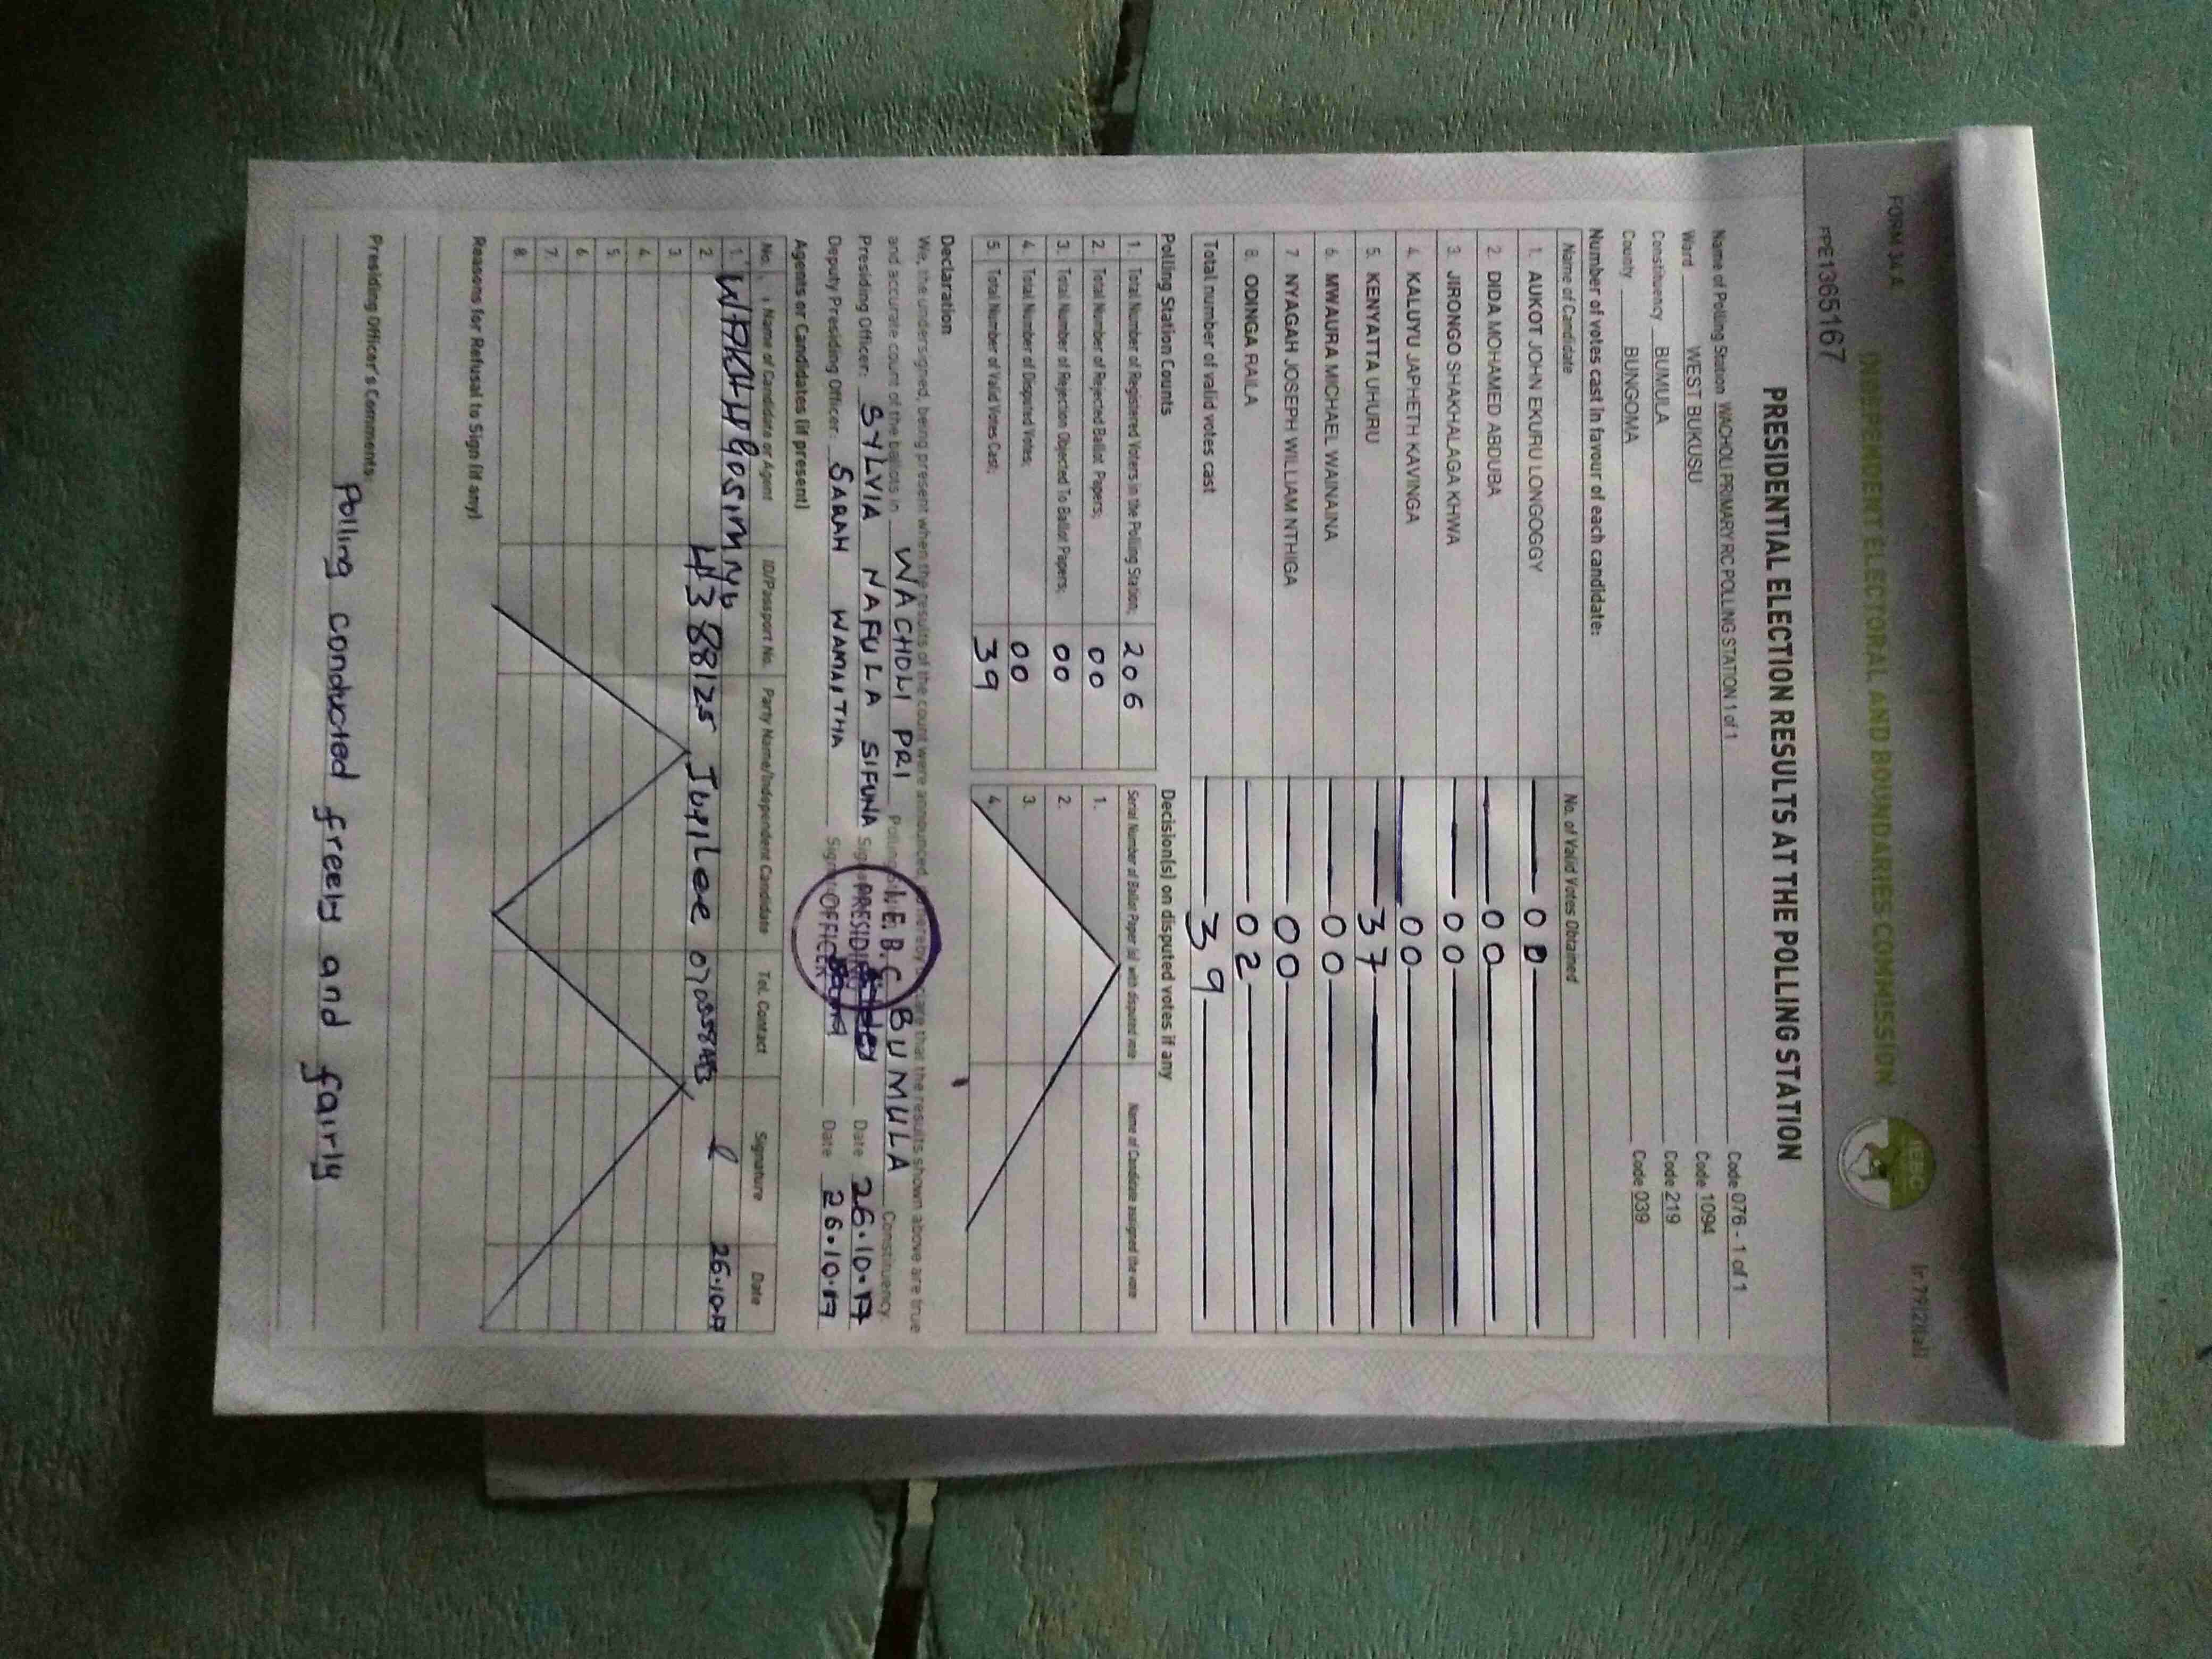 FORM 34 A
INDEPENDENT ELECTORAL AND BOUNDARIES COMMISSION
IEBC
PPE1365167
PRESIDENTIAL ELECTION RESULTS AT THE POLLING STATION
Name of Polling Station WACHOLI PRIMARY RC POLLING STATION 1 of 1 Code 076 - 1 of 1
Ward WEST BUKUSU Code 1094
Constituency BUMULA Code 219
County BUNGOMA Code 039
Number of votes cast in favour of each candidate:
Name of Candidate No. of Valid Votes Obtained
1. AUKOT JOHN EKURU LONGOGGY 00
2. DIDA MOHAMED ABDUBA 00
3. JIRONGO SHAKHALAGA KHWA 00
4. KALUYU JAPHETH KAVINGA 00
5. KENYATTA UHURU 37
6. MWAURA MICHAEL WAINAINA 00
7 NYAGAH JOSEPH WILLIAM NTHIGA 00
8. ODINGA RAILA 02
Total number of valid votes cast 39
Polling Station Counts Decision(s) on disputed votes if any
1. Total Number of Registered Voters in the Polling Station; 206 Serial Number of Ballot Paper (s) with disputed vote Name of Candidate assigned the vote
2. Total Number of Rejected Ballot Papers; 00 1.
3. Total Number of Rejection Objected To Ballot Papers; 00 2.
4. Total Number of Disputed Votes; 00 3.
5. Total Number of Valid Votes Cast; 39 4.
Declaration
We, the undersigned, being present when the results of the count were announced, do hereby declare that the results shown above are true
and accurate count of the ballots in WACHOLI PRI Polling BUMULA Constituency
Presiding Officer: SYLVIA NAFULA SIFUNA Date 26.10.17
Deputy Presiding Officer: SARAH WAMAITHA Date 26.10.17
I.E.B.C
PRESIDING
OFFICER
Agents or Candidates (if present)
No. Name of Candidate or Agent ID/Passport No. Party Name/Independent Candidate Tel. Contact Signature Date
1
2 Jubilee 26.10.17
3
4
5
6
7
8
Reasons for Refusal to Sign (if any)
Presiding Officer's Comments
Polling conducted freely and fairly